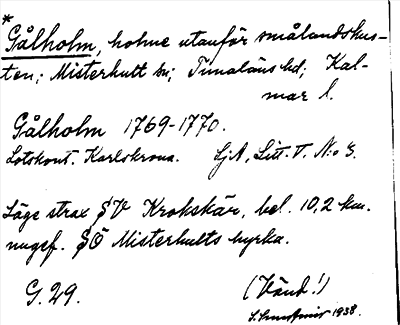 *
Gålholm, holme utanför smålandskus-
ten; Misterhult sn; Tunaläns hd; Kal-
mar l.
Gålholm 1769-1770.
Lotskont. Karlskrona. SjA, Litt. V. No 3.
Läge strax SV Krokskär, bel. 10,2 km.
ungef. SÖ Misterhults kyrka.
G. 29. (Vänd!)
1938.